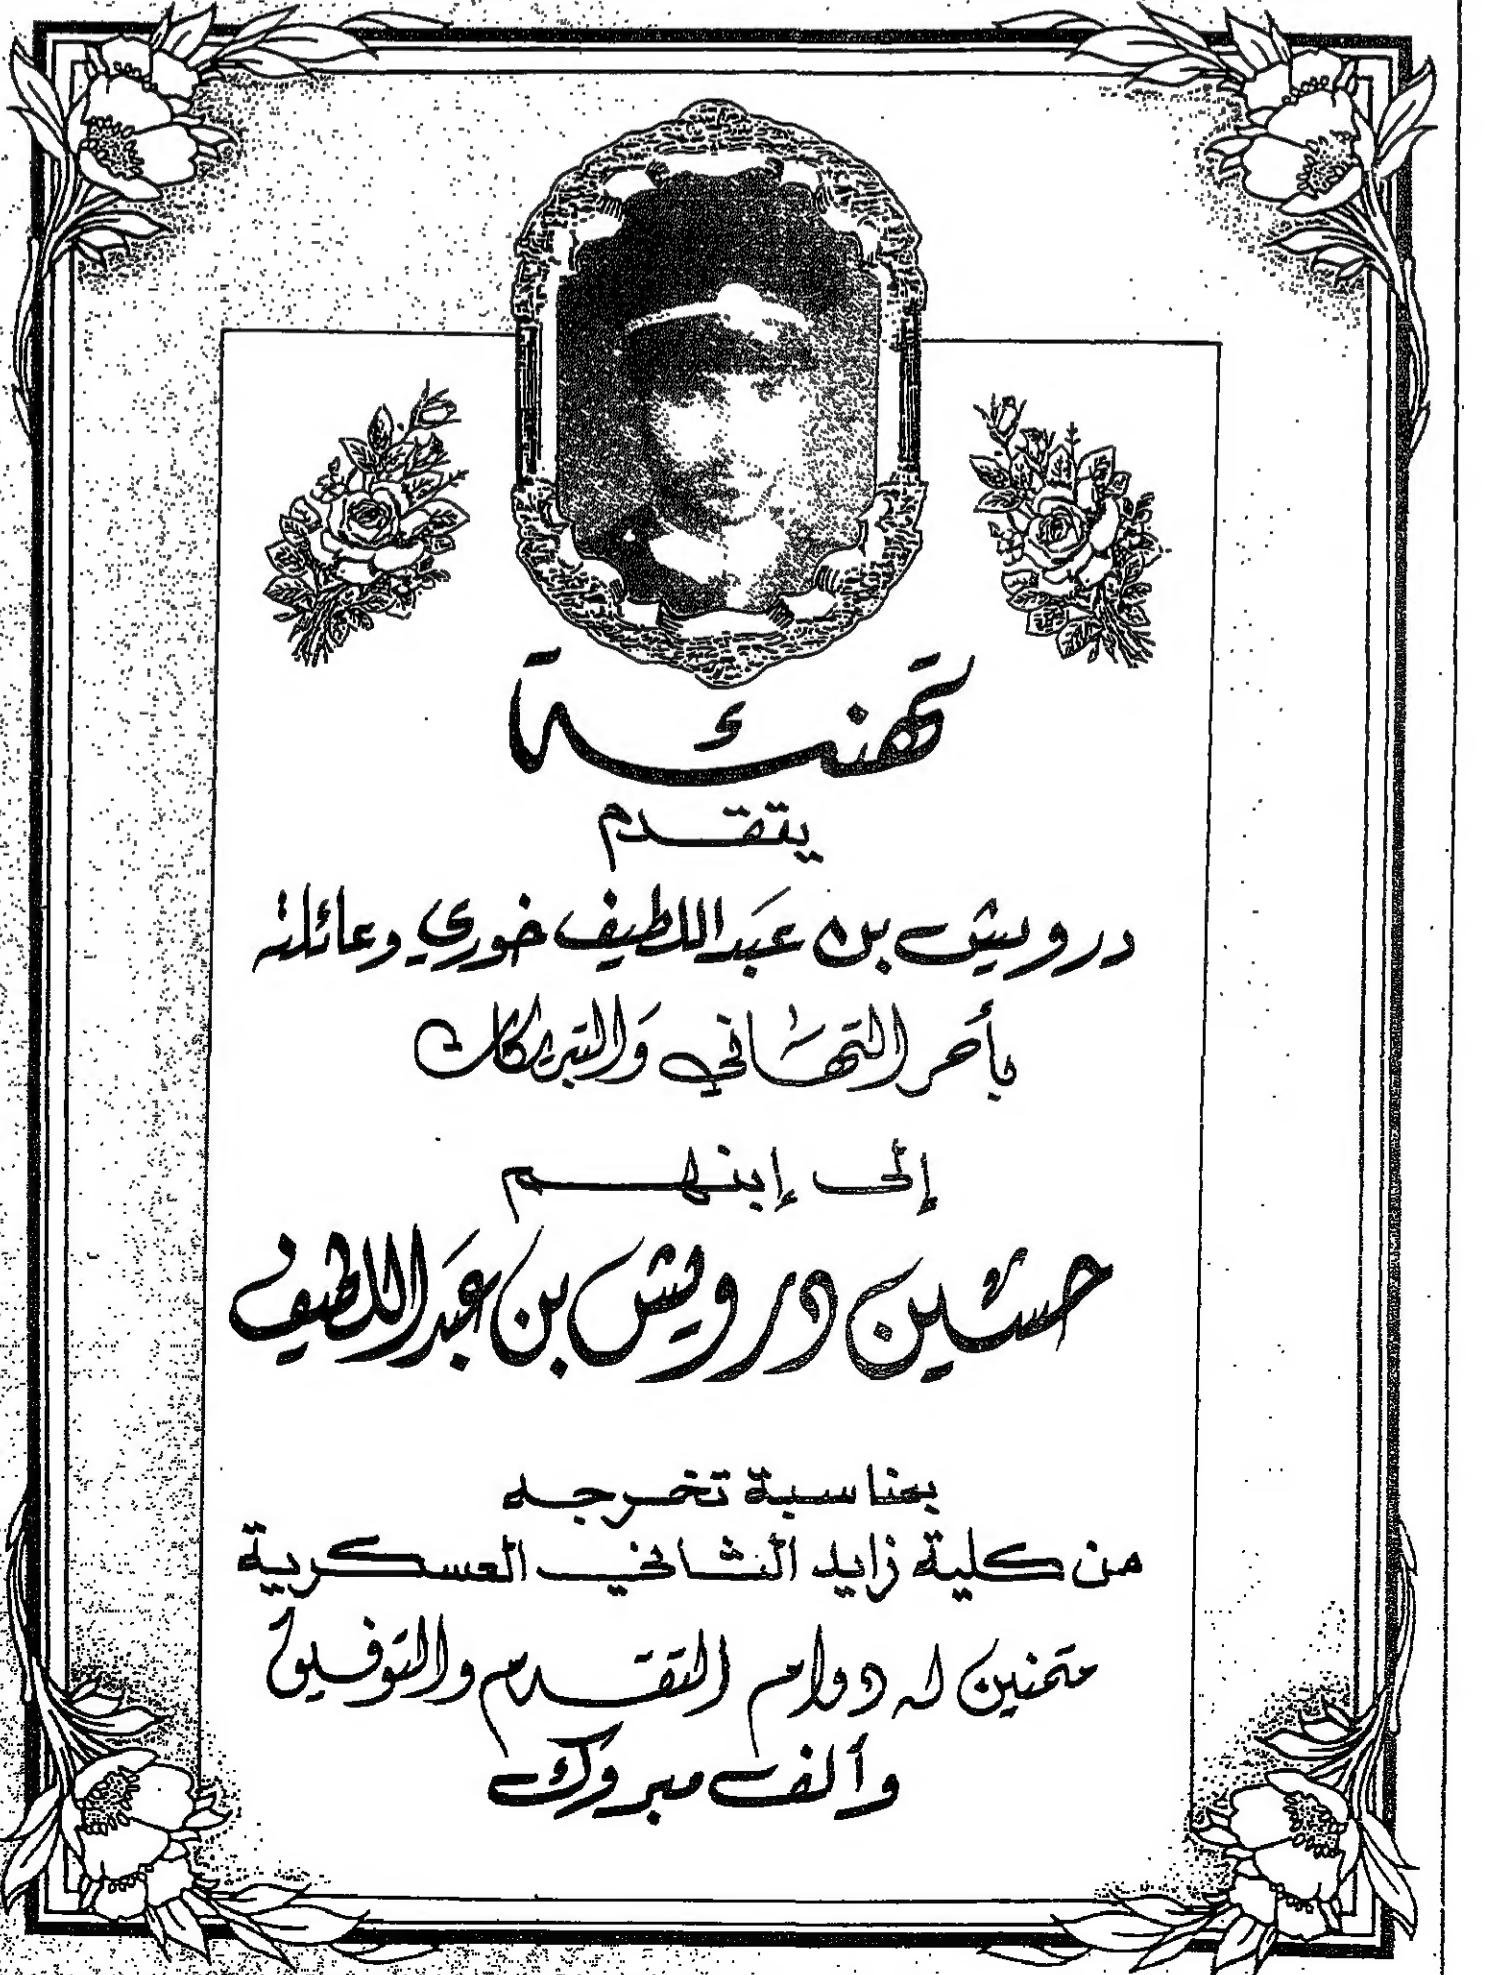 تهنئة
يتقدم
درويش بن عبد اللطيف خوري وعائلته
بأحر التهاني والتبريكات
إلى إبنهم
حسين درويش بن عبد اللطيف
بمناسبة تخرجه
من كلية زايد الثاني العسكرية
متمنين له دوام التقدم والتوفيق
وألف مبروك